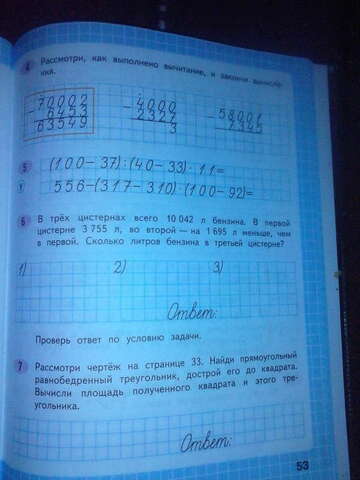 4 Рассмотри, как выполнено вычитание, и закончи вычисле-
ния.
70002 4000 58001
- 6453 - 2327 - 7345
63549 3
5 (100-37):(40-33)·11=
556-(317-310)·(100-92)=
6 В трёх цистернах всего 10 042 л бензина. В первой
цистерне 3 755 л, во второй — на 1 695 л меньше, чем
в первой. Сколько литров бензина в третьей цистерне?
1) 2) 3)
Ответ:
Проверь ответ по условию задачи.
7 Рассмотри чертёж на странице 33. Найди прямоугольный
равнобедренный треугольник, дострой его до квадрата.
Вычисли площадь полученного квадрата и этого тре-
угольника.
Ответ:
53